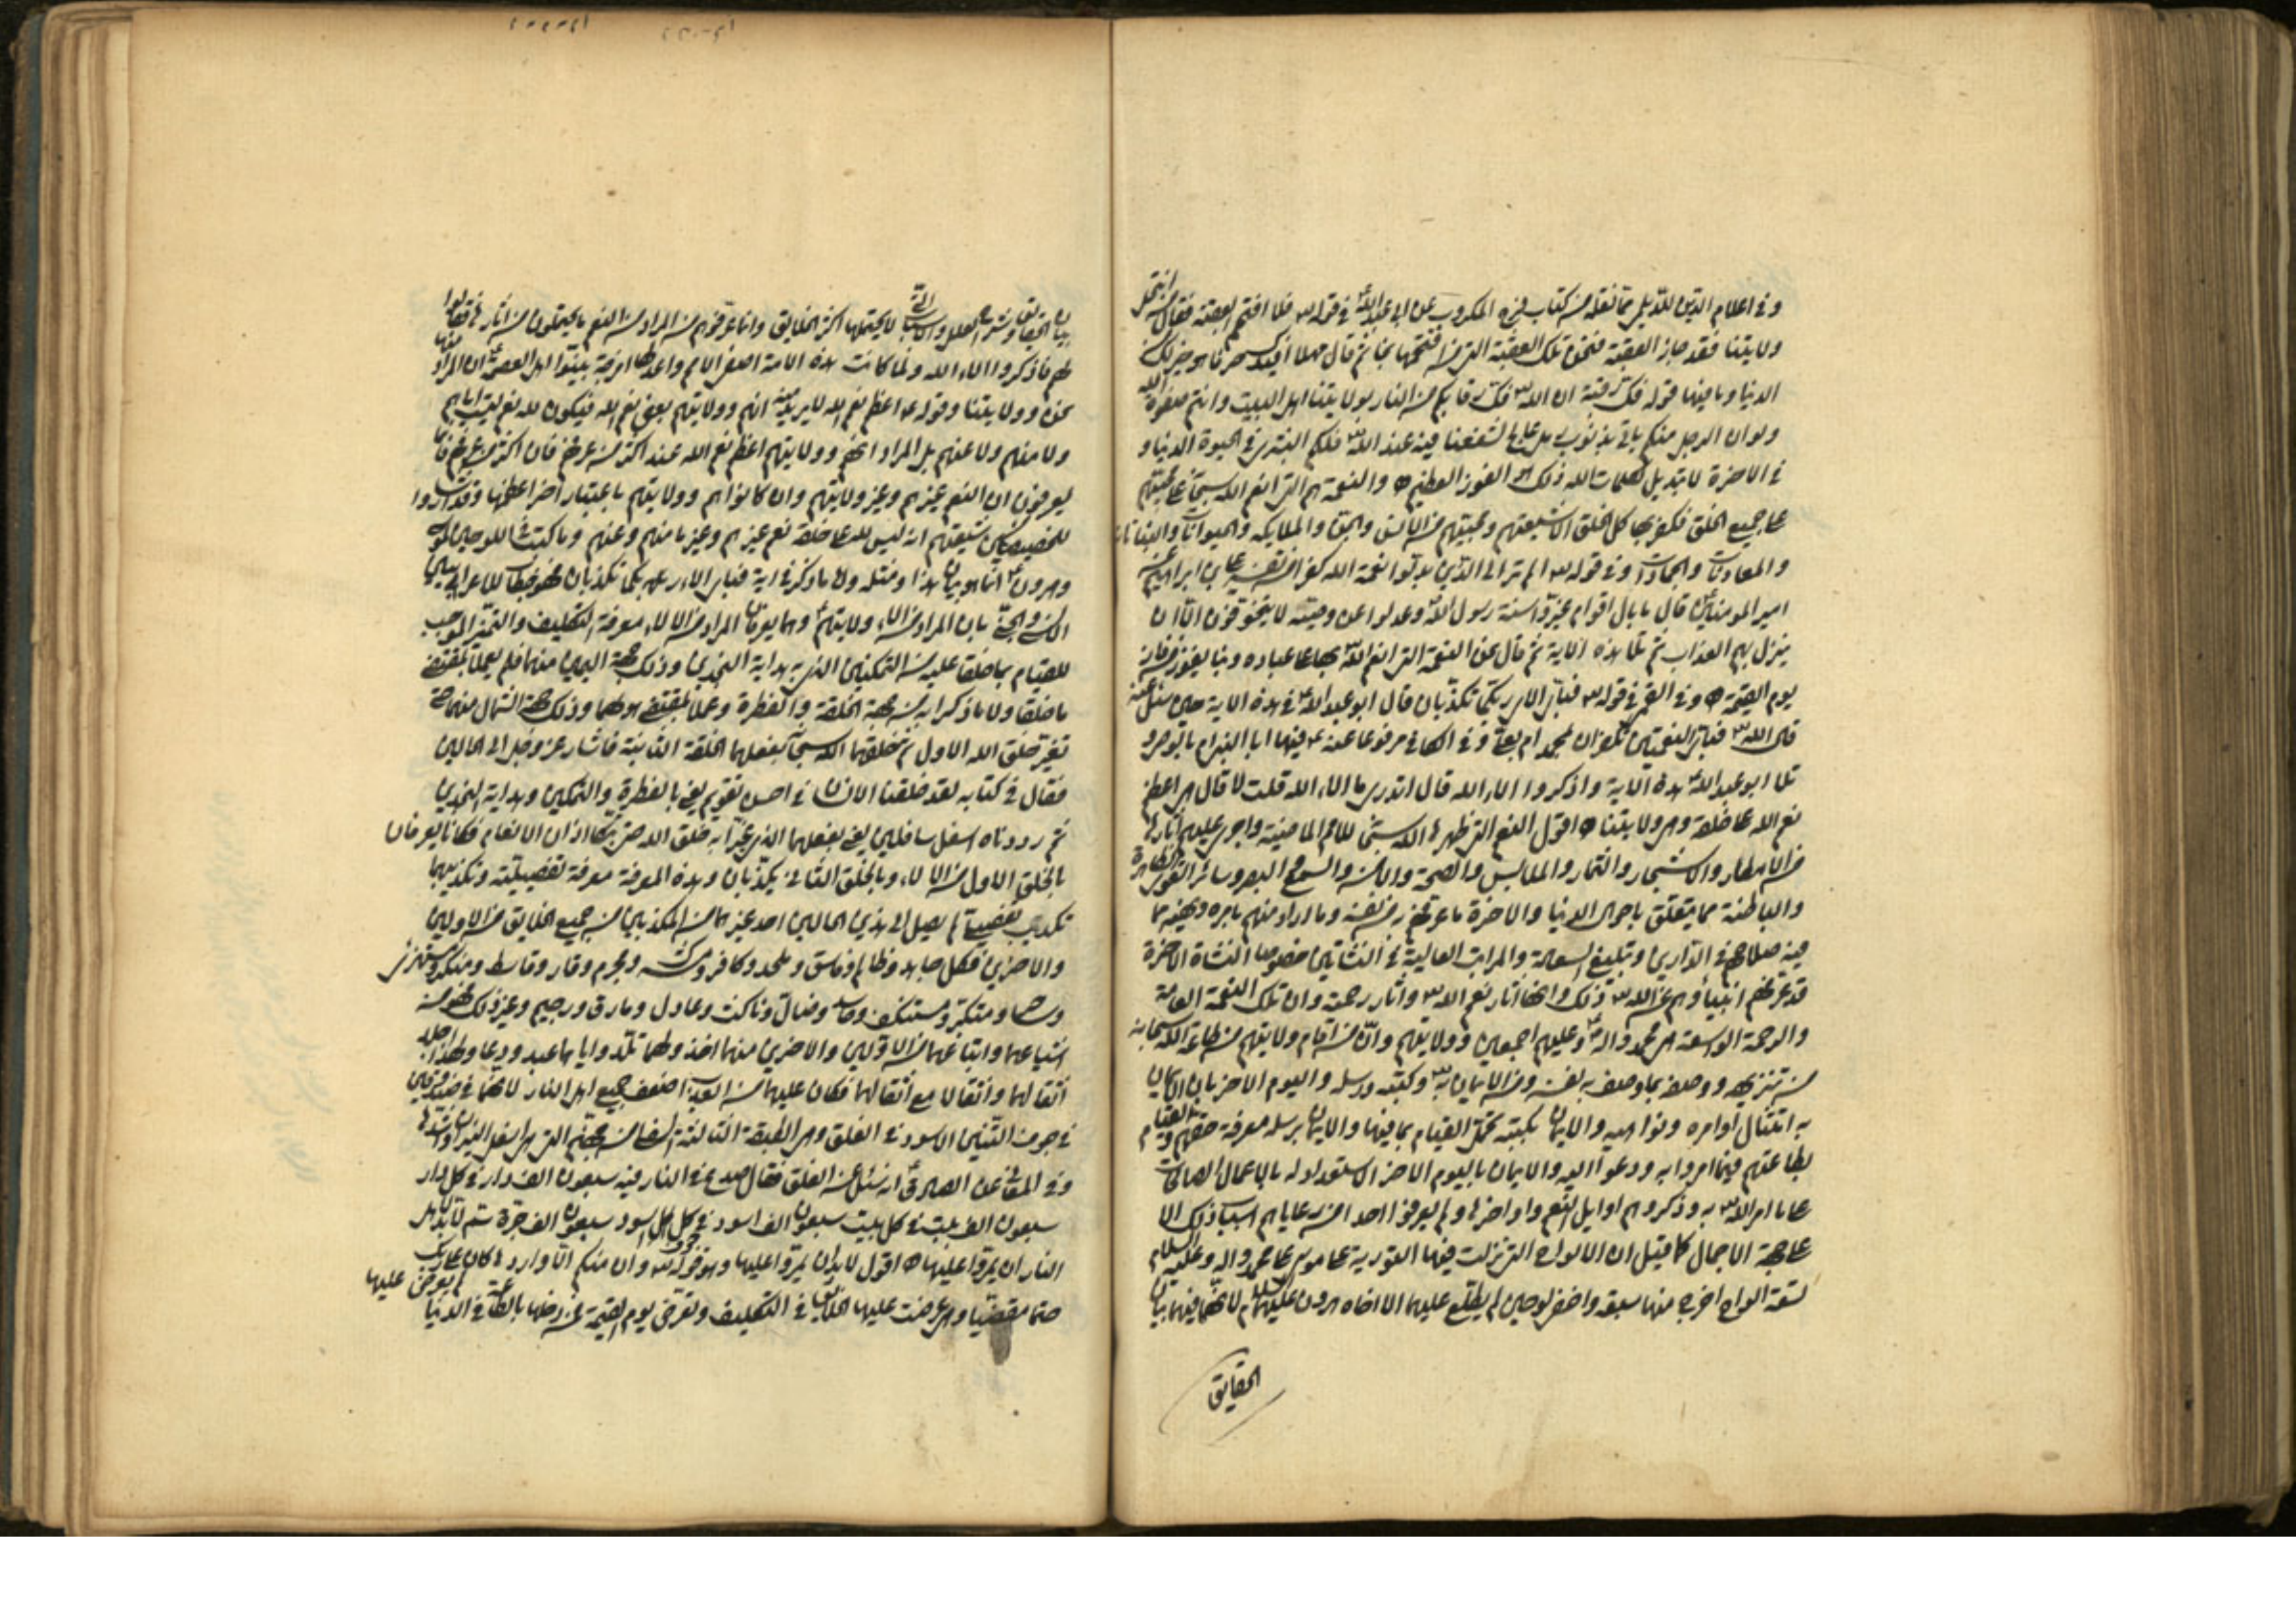 وفي اعلام الدين للديلمي مما نقله من كتاب فرج الكروب عن ابي عبد الله ع في قوله تع فلا اقتحم العقبة فقال من انتحل
ولايتنا فقد جاز العقبة فنحن تلك العقبة التي من اقتحمها نجا ثم قال مهلا افيدك حرفا هو خير لك من
الدنيا وما فيها قوله فك رقبة ان الله تع فك رقابكم من النار بولايتنا اهل البيت وانتم صفوة الله
ولو ان الرجل منكم ياتي بذنوب مثل رمل عالج لشفعنا فيه عند الله تع فلكم البشرى في الحيوة الدنيا و
في الاخرة لا تبديل لكلمات الله ذلك هو الفوز العظيم والنعمة هم التي انعم الله سبحانه بمحبتهم
على جميع الخلق فكفر بها كل الخلق الا شيعتهم ومحبيهم من الانس والجن والملايكه والحيوانات والنباتات
والمعادن والجمادات وفي قوله تع الم تر الى الذين بدلوا نعمة الله كفرا من تفسير علي بن ابراهيم عن
امير المومنين ع قال ما بال اقوام غيروا سنة رسول الله ص وعدلوا عن وصيه لا يتخوفون ان
ينزل بهم العذاب ثم تلا هذه الاية ثم قال نحن النعمة التي انعم الله بها على عباده وبنا يفوز من فاز
يوم القيمة وفي القمي في قوله تع فباي الاء ربكما تكذبان قال ابو عبد الله ع في هذه الاية حين سئل عنه
قال الله تع فباي النعمتين تكفران بمحمد ام بعلي وفي الكافي مرفوعا عنه ع فيها ابالنبي ام بالوصي و
تلا ابو عبد الله ع هذه الاية واذكروا الاء الله قال اتدري ما الاء الله قلت لا قال هي اعظم
نعم الله على خلقه وهي ولايتنا اقول النعم التي ظهر بها الله سبحانه للامم الماضية واجرى عليهم اثارها
من الامطار والاشجار والثمار والملابس والصحة والامن والسمع والبصر وسائر القوى الظاهرة
والباطنة مما يتعلق باحوال الدنيا والاخرة ما عرفهم من نفسه وما اراد منهم بامره ونهيه مما
فيه صلاحهم في الدارين وتبليغ السعادة والمراتب العالية في النشاتين خصوصا النشاة الاخرة
قد عرفهم انبياؤهم عن الله تع ذلك وانها اثار نعم الله تع واثار رحمته وان تلك النعمة العامة
والرحمة الواسعة هي محمد واله ص وعليهم اجمعين وولايتهم وان من اقام ولايتهم من طاعة الله سبحانه
من تنزيهه ووصفه بما وصف به نفسه ومن الايمان به تع وكتبه ورسله واليوم الاخر بان الايمان
به امتثال اوامره ونواهيه والايمان بكتبه تحمل القيام بما فيها والايمان برسله معرفة حقهم والقيام
بطاعتهم فيما امروا به ودعوا اليه والايمان باليوم الاخر الاستعداد له بالاعمال الصالحات
على ما امر الله تع به وذكروهم اوايل النعم واواخرها ولم يعرفوا احدا من رعاياهم اسباب ذلك الا
على جهة الاجمال كما قيل ان الالواح التي نزلت فيها التورية على موسى على محمد واله وعليه السلام
تسعة الواح اخرج منها سبعة واخفى لوحين لم يطلع عليهما الا اخاه هرون عليهما السلام لانهما فيهما بيان
الحقايق
بيان الحقايق وشرح العلل والاسباب التي لا يحتملها اكثر الخلايق وانما عرفوهم من المراد من النعم ما يحتملون من اثارها فقالوا
لهم فاذكروا الاء الله ولما كانت هذه الامة اصفى الامم واعدلها امزجة بينوا اهل العصمة ع ان المراد منها
نحن وولايتنا وقوله ع اعظم نعم الله لا يريد منه انهم وولايتهم بعض نعم الله فيكون لله نعم ليست اياهم
ولا منهم ولا عنهم بل المراد انهم وولايتهم اعظم نعم الله عند اكثر من عرفهم فان اكثر من عرفهم فانما
يعرفون ان النعم غيرهم وغير ولايتهم وان كانوا هم وولايتهم باعتبار اخر اعظمها وقد اشاروا
للخصيصين من شيعتهم انه ليس لله على خلقه نعم غيرهم وغير ما منهم وعنهم وما كتب في اللوحين لموسى
وهرون ع انما هو بيان هذا ومثله ولا ما ذكر في اية فباي الاء ربكما تكذبان فهو خطاب للاعرابيين
الانس والجن بان المراد من الالاء ولايتهم ع وهما يعرفان المراد من الالاء معرفة التكليف والتمييز الموجب
للقيام بما خلقا عليه من التمكين الذي به هداية النجدين وذلك جهة اليمين منهما فلم يعملا بمقتضى
ما خلقا ولا ما ذكرا به من جهة الخلقة والفطرة وعملا بمقتضى هواهما وذلك جهة الشمال منهما جهة
تغيير خلق الله الاول ثم خلقهما الله سبحانه بفعلهما الخلقة الثانية فاشار عز وجل الى الحالين
فقال في كتابه لقد خلقنا الانسان في احسن تقويم يعني بالفطرة والتمكين وهداية النجدين
ثم رددناه اسفل سافلين يعني بفعلهما الذي غيرا به خلق الله حتى بتكا اذان الانعام فكانا يعرفان
بالخلق الاول من الالاء وبالخلق الثاني يكذبان وهذه المعرفة معرفة تفصيلية وتكذيبهما
تكذيب تفصيلي لم يصل الى هذين الحالين احد غيرهما من المكذبين من جميع الخلايق من الاولين
والاخرين فكل جاحد وظالم وفاسق وملحد وكافر ومشرك ومجرم وفار وقاسط ومنكر ومستهزئ
ومتكبر ومستنكف وحاسد وضال وناكث وعادل ومارق ورجيم وغير ذلك فهو من
اشياعهما واتباعهما من الاولين والاخرين منهما اخذ ولهما تلمذ واياهما عبد ودعا ولهذا حملا
اثقالهما واثقالا مع اثقالهما فكان عليهما من العذاب اضعف جميع اهل النار لانهما في صندوقين
في جوف التنين الاسود في الفلق وهي الطبقة الثالثة السفلى من جهنم التي هي اسفل النيران واشدها
وفي المعاني عن الصادق ع انه سئل عن الفلق فقال صدع في النار فيه سبعون الف دار في كل دار
سبعون الف بيت في كل بيت سبعون الف اسود في جوف كل اسود سبعون الف جرة سم لا بد لاهل
النار ان يمروا عليها اقول لا بد ان يمروا عليها وهو قوله تع وان منكم الا واردها كان على ربك
حتما مقضيا وهي عرضت عليها الخلايق في التكليف وتعرض يوم القيمة فمن دخلها بالطاعة في الدنيا لم يعرض عليها